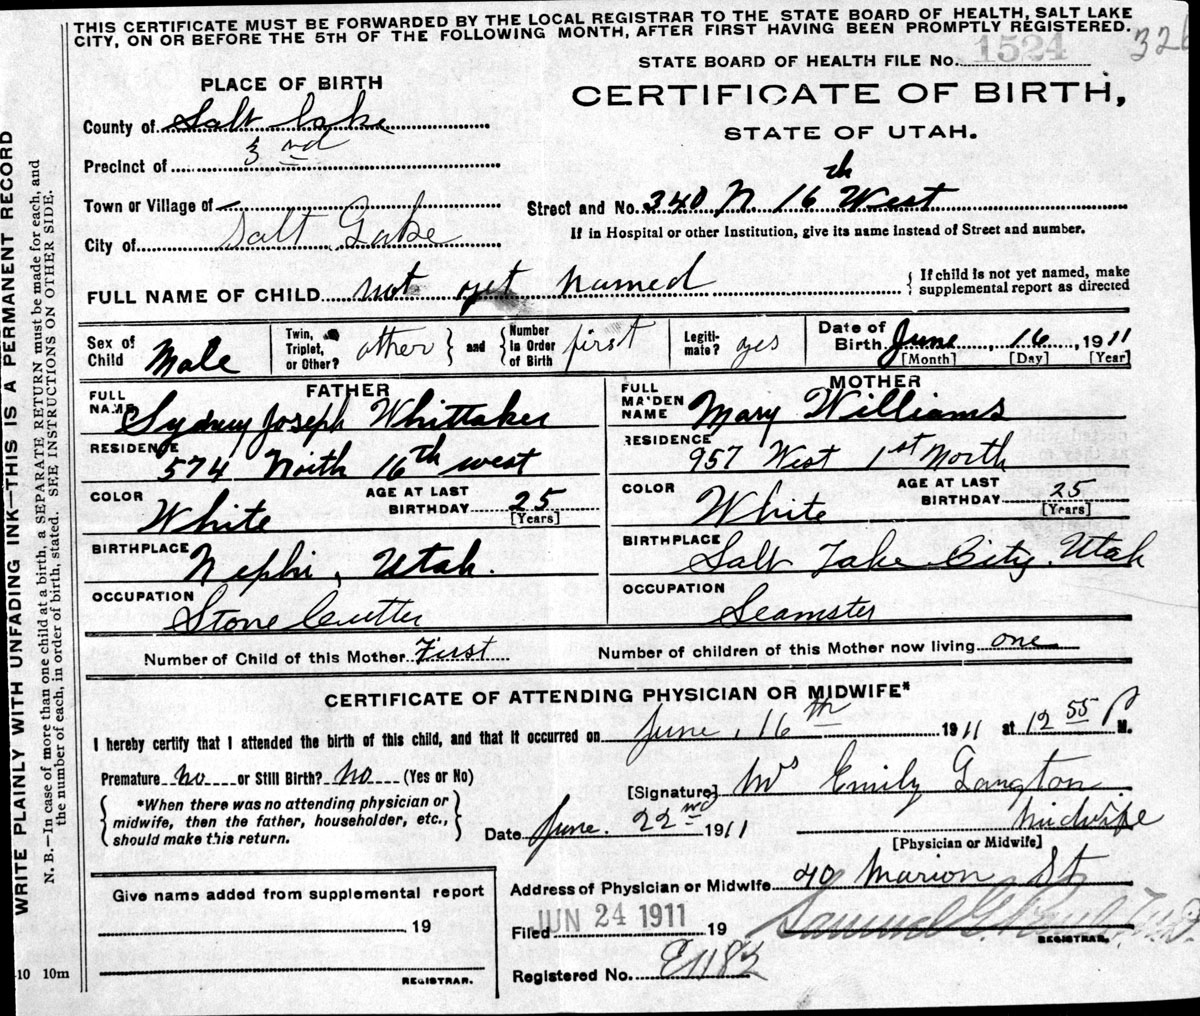 THIS CERTIFICATE MUST BE FORWARDED BY THE LOCAL REGISTRAR TO THE STATE BOARD OF HEALTH, SALT LAKE
CITY, ON OR BEFORE THE 5TH OF THE FOLLOWING MONTH, AFTER FIRST HAVING BEEN PROMPTLY REGISTERED.
326
STATE BOARD OF HEALTH FILE No. 1524
PLACE OF BIRTH
CERTIFICATE OF BIRTH,
STATE OF UTAH.
County of Salt Lake
Precinct of 3rd
Town or Village of
Street and No. 340 N 16th West
City of Salt Lake
If in Hospital or other Institution, give its name instead of Street and number.
FULL NAME OF CHILD not yet named
{ If child is not yet named, make
supplemental report as directed
Sex of Child Male
Twin, Triplet, or Other? other } and { Number in Order of Birth first
Legitimate? yes
Date of Birth June, 16, 1911
[Month] [Day] [Year]
FATHER
FULL NAME Sydney Joseph Whittaker
RESIDENCE 574 North 16th west
COLOR White
AGE AT LAST BIRTHDAY 25
[Years]
BIRTHPLACE Nephi, Utah.
OCCUPATION Stone Cutter
MOTHER
FULL MAIDEN NAME Mary Williams
RESIDENCE 957 West 1st North
COLOR White
AGE AT LAST BIRTHDAY 25
[Years]
BIRTHPLACE Salt Lake City. Utah
OCCUPATION Seamster
Number of Child of this Mother First
Number of children of this Mother now living one
CERTIFICATE OF ATTENDING PHYSICIAN OR MIDWIFE*
I hereby certify that I attended the birth of this child, and that it occurred on June, 16th 1911 at 12 55 P M.
Premature no or Still Birth? no (Yes or No)
{ *When there was no attending physician or
midwife, then the father, householder, etc.,
should make this return. }
[Signature] Mrs Emily Langton
Date June. 22nd 1911
Midwife
[Physician or Midwife]
Give name added from supplemental report
19
REGISTRAR.
Address of Physician or Midwife 40 Marion St
Filed JUN 24 1911 19
Samuel G. M.D.
REGISTRAR.
Registered No. E1182
10 10m
WRITE PLAINLY WITH UNFADING INK—THIS IS A PERMANENT RECORD
N. B.—In case of more than one child at a birth, a SEPARATE RETURN must be made for each, and
the number of each, in order of birth, stated. SEE INSTRUCTIONS ON OTHER SIDE.